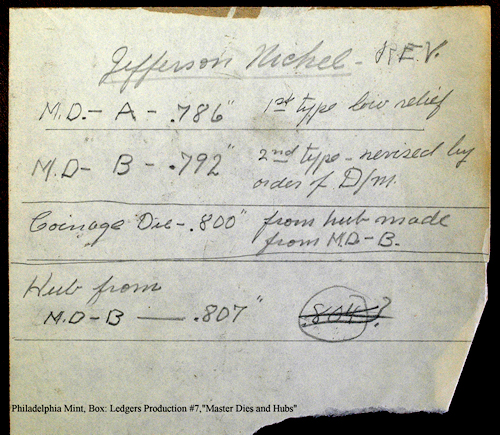 Jefferson Nickel - REV.
M.D. - A - .786" 1st type low relief
M.D - B - .792" 2nd type - revised by
order of D/m.
Coinage Die - .800" from hub made
from M.D - B.
Hub from
M.D - B — .807" .804?
Philadelphia Mint, Box: Ledgers Production #7,"Master Dies and Hubs"